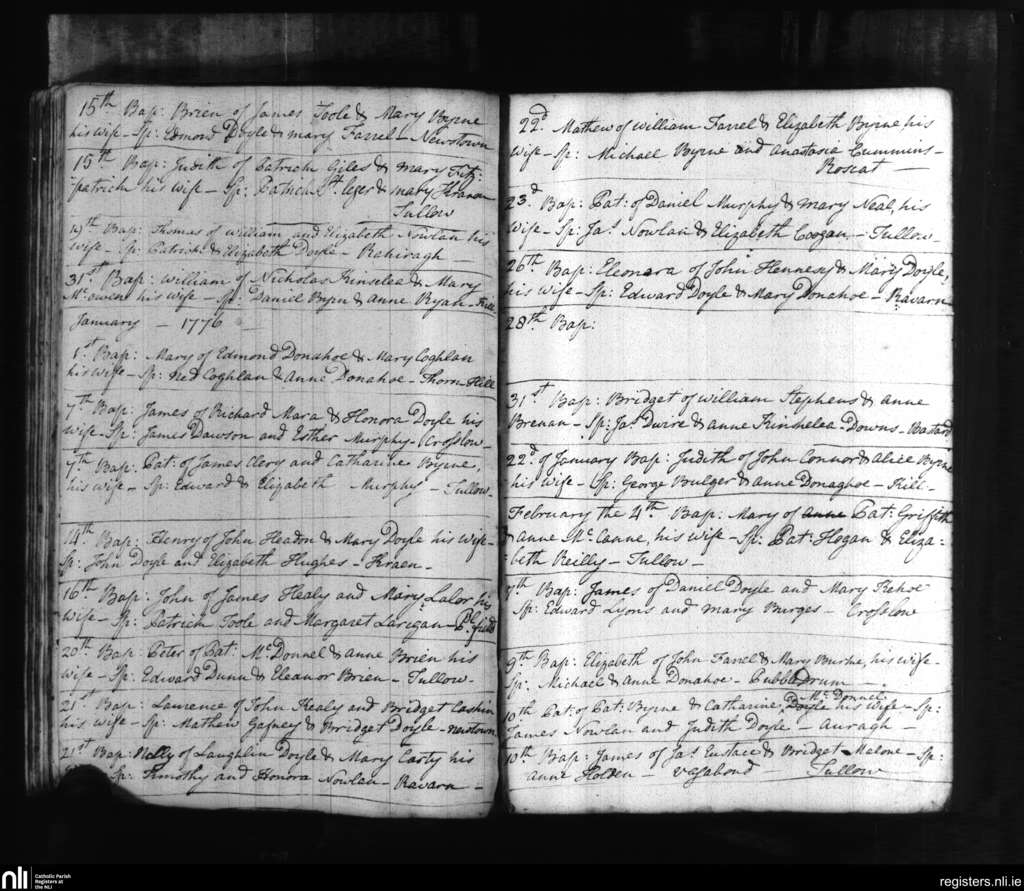 15th Bap: Brien of James Toole & Mary Byrne
his wife - Sp: Edmond Doyle & mary Farrel - Newstown
15th Bap: Judith of Patrick Giles & mary Fitz-
patrick his wife - Sp: Patrick St. leger & mary
Tullow
19th Bap: Thomas of william and Elizabeth Nowlan his
wife - Sp: Patrick & Elizabeth Doyle - Rehiragh -
31st Bap: william of Nicholas Kinselea & Mary
McOwen his wife - Sp: Daniel Byrn & Anne Ryan - Kill
January - 1776 -
1st Bap: Mary of Edmond Donahoe & Mary Coghlan
his wife - Sp: ned Coghlan & Anne Donahoe - Thorn Hill
7th Bap: James of Richard Mara & Honora Doyle his
wife - Sp: James Dawson and Esther Murphy - Croslow -
7th Bap: Pat: of James Clery and Catharine Byrne,
his wife - Sp: Edward & Elizabeth Murphy - Tullow -
14th Bap: Henry of John Headon & Mary Doyle his wife -
Sp: John Doyle and Elizabeth Hughes - Kraen -
16th Bap: John of James Healy and Mary Lalor his
wife - Sp: Patrick Toole and Margaret Larigan -
20th Bap: Peter of Pat: McDonnel & anne Brien his
wife - Sp: Edward Dunn & Eleanor Brien - Tullow -
21st Bap: Laurence of John Healy and Bridget Cashin
his wife - Sp: Mathew Gafney & Bridget Doyle - newtown
21st Bap: Nelly of Laughlin Doyle & Mary Carty his
Sp: Timothy and Honora Nowlan - Ravarn -
22d. Mathew of william Farrel & Elizabeth Byrne, his
wife - Sp: Michael Byrne and Anastasia Cummins -
Roscat -
23d Bap: Pat: of Daniel Murphy & mary Neal, his
wife - Sp: Jas Nowlan & Elizabeth Coogan - Tullow -
26th Bap: Eleonora of John Hennesy & Mary Doyle,
his wife - Sp: Edward Doyle & Mary Donahoe - Ravarn
28th Bap:
31st Bap: Bridget of william Stephens & anne
Brenan - Sp: Jas Dwire & anne Kinshelea Downs - Bastard
22d of January Bap: Judith of John Connor & Alice Byrne
his wife - Sp: George Boulger & anne Donaghoe - Kill -
February the 4th Bap: Mary of anne Pat: Griffith
& anne McCanne, his wife - Sp: Pat: Hogan & Eliza-
beth Reilly - Tullow -
7th Bap: James of Daniel Doyle and Mary Kehoe
Sp: Edward Lyons and mary Burges - Croslow
9th Bap: Elizabeth of John Farrel & Mary Burke, his wife -
Sp: Michael & anne Donahoe - Pubbledrum -
McDonnel
10th Pat: of Pat: Byrne & Catharine Doyle his wife - Sp:
James Nowlan and Judith Doyle - Auragh -
10th Bap: James of Jas Eustace & Bridget Malone - Sp:
anne Holden - vagabond - Tullow
nli
Catholic Parish
Registers at
the NLI
registers.nli.ie